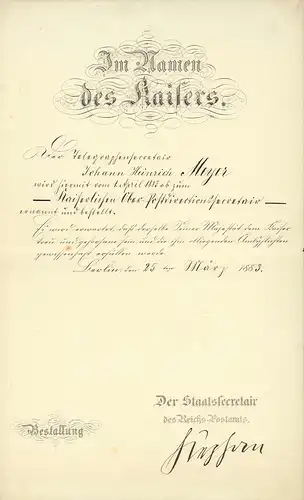 Im Namen
des Kaisers.
Der Telegraphensecretair
Johann Heinrich Meyer
wird hiermit vom 1. April 1883 ab zum
— Kaiserlichen Ober-Postdirectionssecretair —
ernannt und bestellt.
Es wird erwartet, daß derselbe Seiner Majestät dem Kaiser
treu und gehorsam sein und die ihm obliegenden Amtspflichten
gewissenhaft erfüllen werde.
Berlin, den 25 ten März 1883.
Der Staatssecretair
des Reichs-Postamts.
Bestallung
Stephan